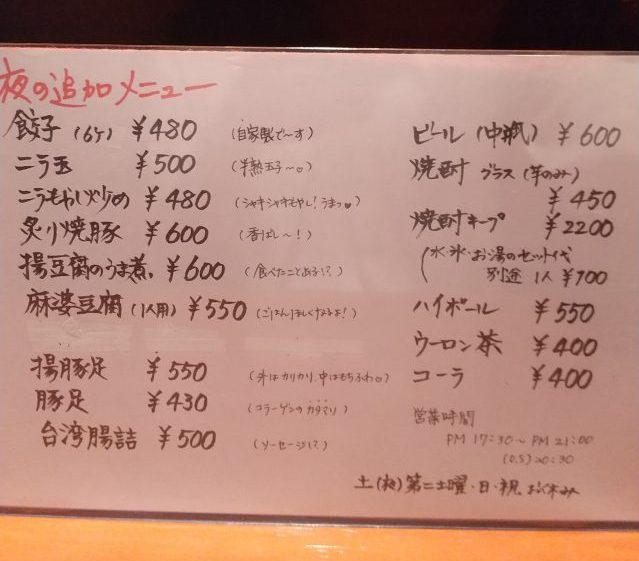 夜の追加メニュー
餃子 (6ケ) ¥480 (自家製で〜す)
ニラ玉 ¥500 (半熟玉子〜♡)
ニラもやし炒め ¥480 (シャキシャキもやし!うまっ♥)
炙り焼豚 ¥600 (香ばし〜!)
揚豆腐のうま煮 ¥600 (食べたことある!?)
麻婆豆腐 (1人用) ¥550 (ごはんほしくなるよ!)
揚豚足 ¥550 (外はカリカリ、中はもちふわ♡)
豚足 ¥430 (コラーゲンのカタマリ)
台湾腸詰 ¥500 (ソーセージ!?)
ビール (中瓶) ¥600
焼酎 グラス (芋のみ)
¥450
焼酎キープ ¥2200
(水・氷・お湯のセット代
別途 1人 ¥700
ハイボール ¥550
ウーロン茶 ¥400
コーラ ¥400
営業時間
PM 17:30〜PM 21:00
(O.S) 20:30
土(夜) 第二土曜・日・祝 お休み